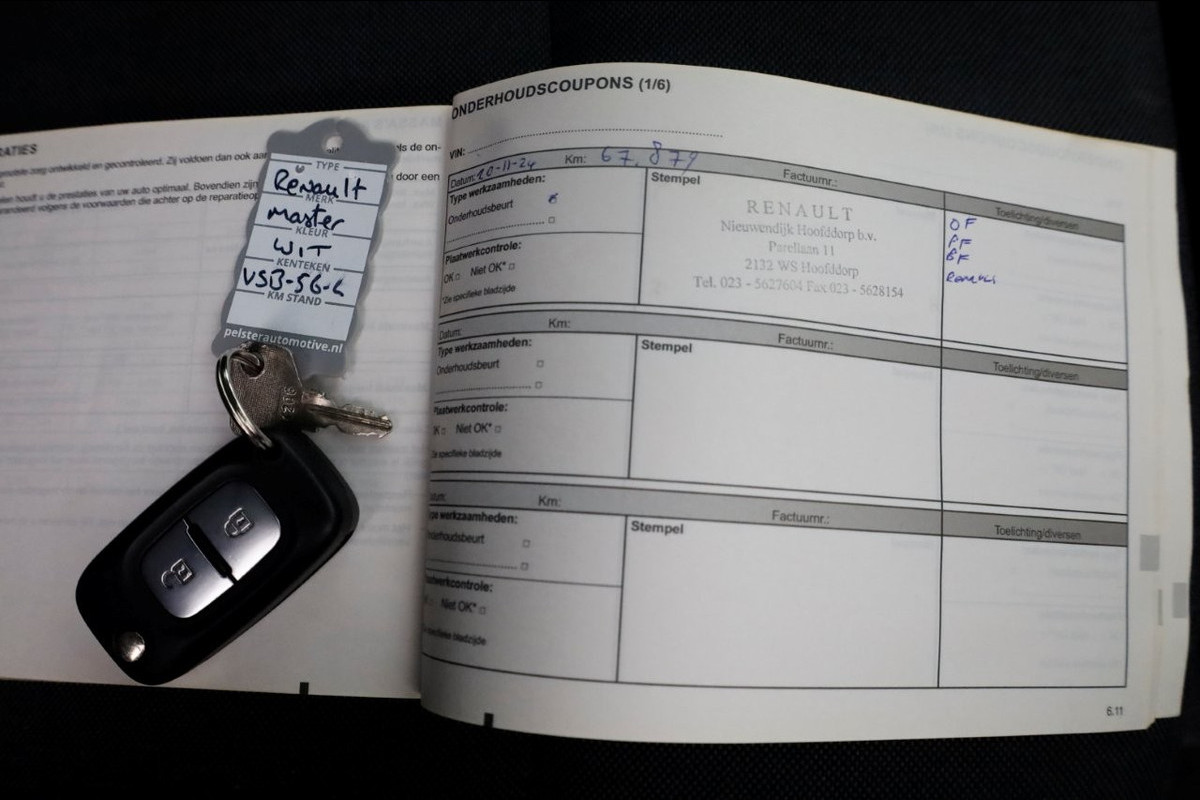 RATIES
gemotete zorg ontwikkeld en gecontroleerd. Zij voldoen dan ook aan
als de on-
door een
len houdt u de prestaties van uw auto optimaal. Bovendien zijn
randeerd volgens de voorwaarden die achter op de reparatieop
TYPE
Renault
MERK
Master
KLEUR
WIT
KENTEKEN
VSB-56-L
KM STAND
pelsterautomotive.nl
ONDERHOUDSCOUPONS (1/6)
VIN:
Datum: 20-11-24 Km: 67.879 Factuurnr.:
Type werkzaamheden:
Onderhoudsbeurt
Plaatwerkcontrole:
OK Niet OK*
*Zie specifieke bladzijde
Stempel
RENAULT
Nieuwendijk Hoofddorp b.v.
Parellaan 11
2132 WS Hoofddorp
Tel. 023 - 5627604 Fax 023 - 5628154
Toelichting/diversen
OF
PF
BF
Datum: Km: Factuurnr.:
Type werkzaamheden:
Onderhoudsbeurt
Plaatwerkcontrole:
OK Niet OK*
Zie specifieke bladzijde
Stempel
Toelichting/diversen
Datum: Km: Factuurnr.:
Type werkzaamheden:
Onderhoudsbeurt
Plaatwerkcontrole:
Niet OK*
Zie specifieke bladzijde
Stempel
Toelichting/diversen
6.11